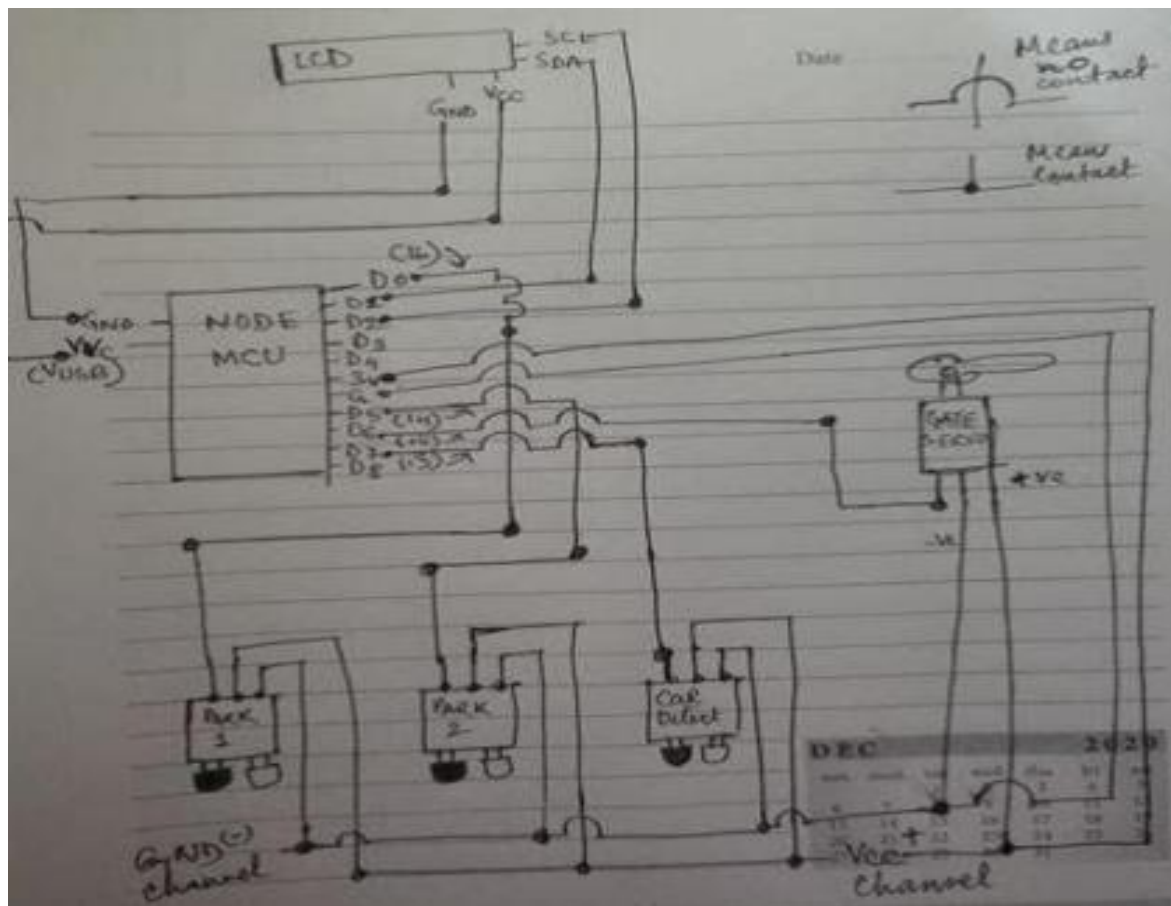 LCD
SCL
SDA
GND
VCC
Date
Means
no
contact
Means
Contact
(16)
D0
D1
D2
D3
D4
3V
G
D5 (14)
D6
D7
D8
GND
(VUSB)
NODE
MCU
GATE
+ve
-ve
PARK
1
PARK
2
Car
Detect
DEC 2020
GND(-)
Channel
VCC +
Channel